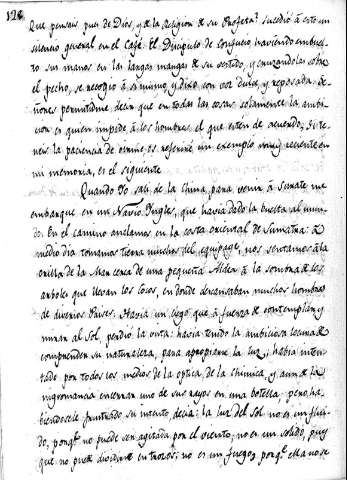 128
Que pensais pues de Dios, y de la Religion de su Profeta? sucedió á esto un
silencio general en el Café. El Discipulo de Confucio haviendo embuel-
to sus manos en las largas mangas de su vestido, y cruzandolas sobre
el pecho, se recogió á sí mismo, y dixo con voz dulce, y reposada. Se-
ñores permitidme decir que en todas las cosas solamente la ambi-
cion es quien impide á los hombres el que esten de acuerdo; si te-
neis la paciencia de oirme, os referiré un exemplo muy reciente en
mi memoria, es el siguiente
Quando Yo salí de la China para venir á Surate me
embarqué en un Navio Ingles, que havia dado la buelta al mun-
do. En el camino anclamos en la costa oriental de Sumatra: á
medio dia tomamos tierra muchos del equipage, nos sentamos á la
orilla de la Mar cerca de una pequeña Aldea á la sombra de los
arboles que llevan los Cocos, en donde descansaban muchos hombres
de diversos Paises. Havia un ciego que á fuerza de contemplar, y
mirar al Sol, perdió la vista: havia tenido la ambiciosa locura de
comprender su naturaleza, para apropiarse la luz; havia inten-
tado por todos los medios de la optica, de la chimica, y aun de la
nigromancia encerrar uno de sus rayos en una botella; pero, ha-
biendosele frustrado su intento, decia: la luz del Sol no es un flui-
do, porq.e no puede ser agitada por el viento; no es un solido, pues
que no puede dividirse en trozos; no es un fuego, porq.e ella no se